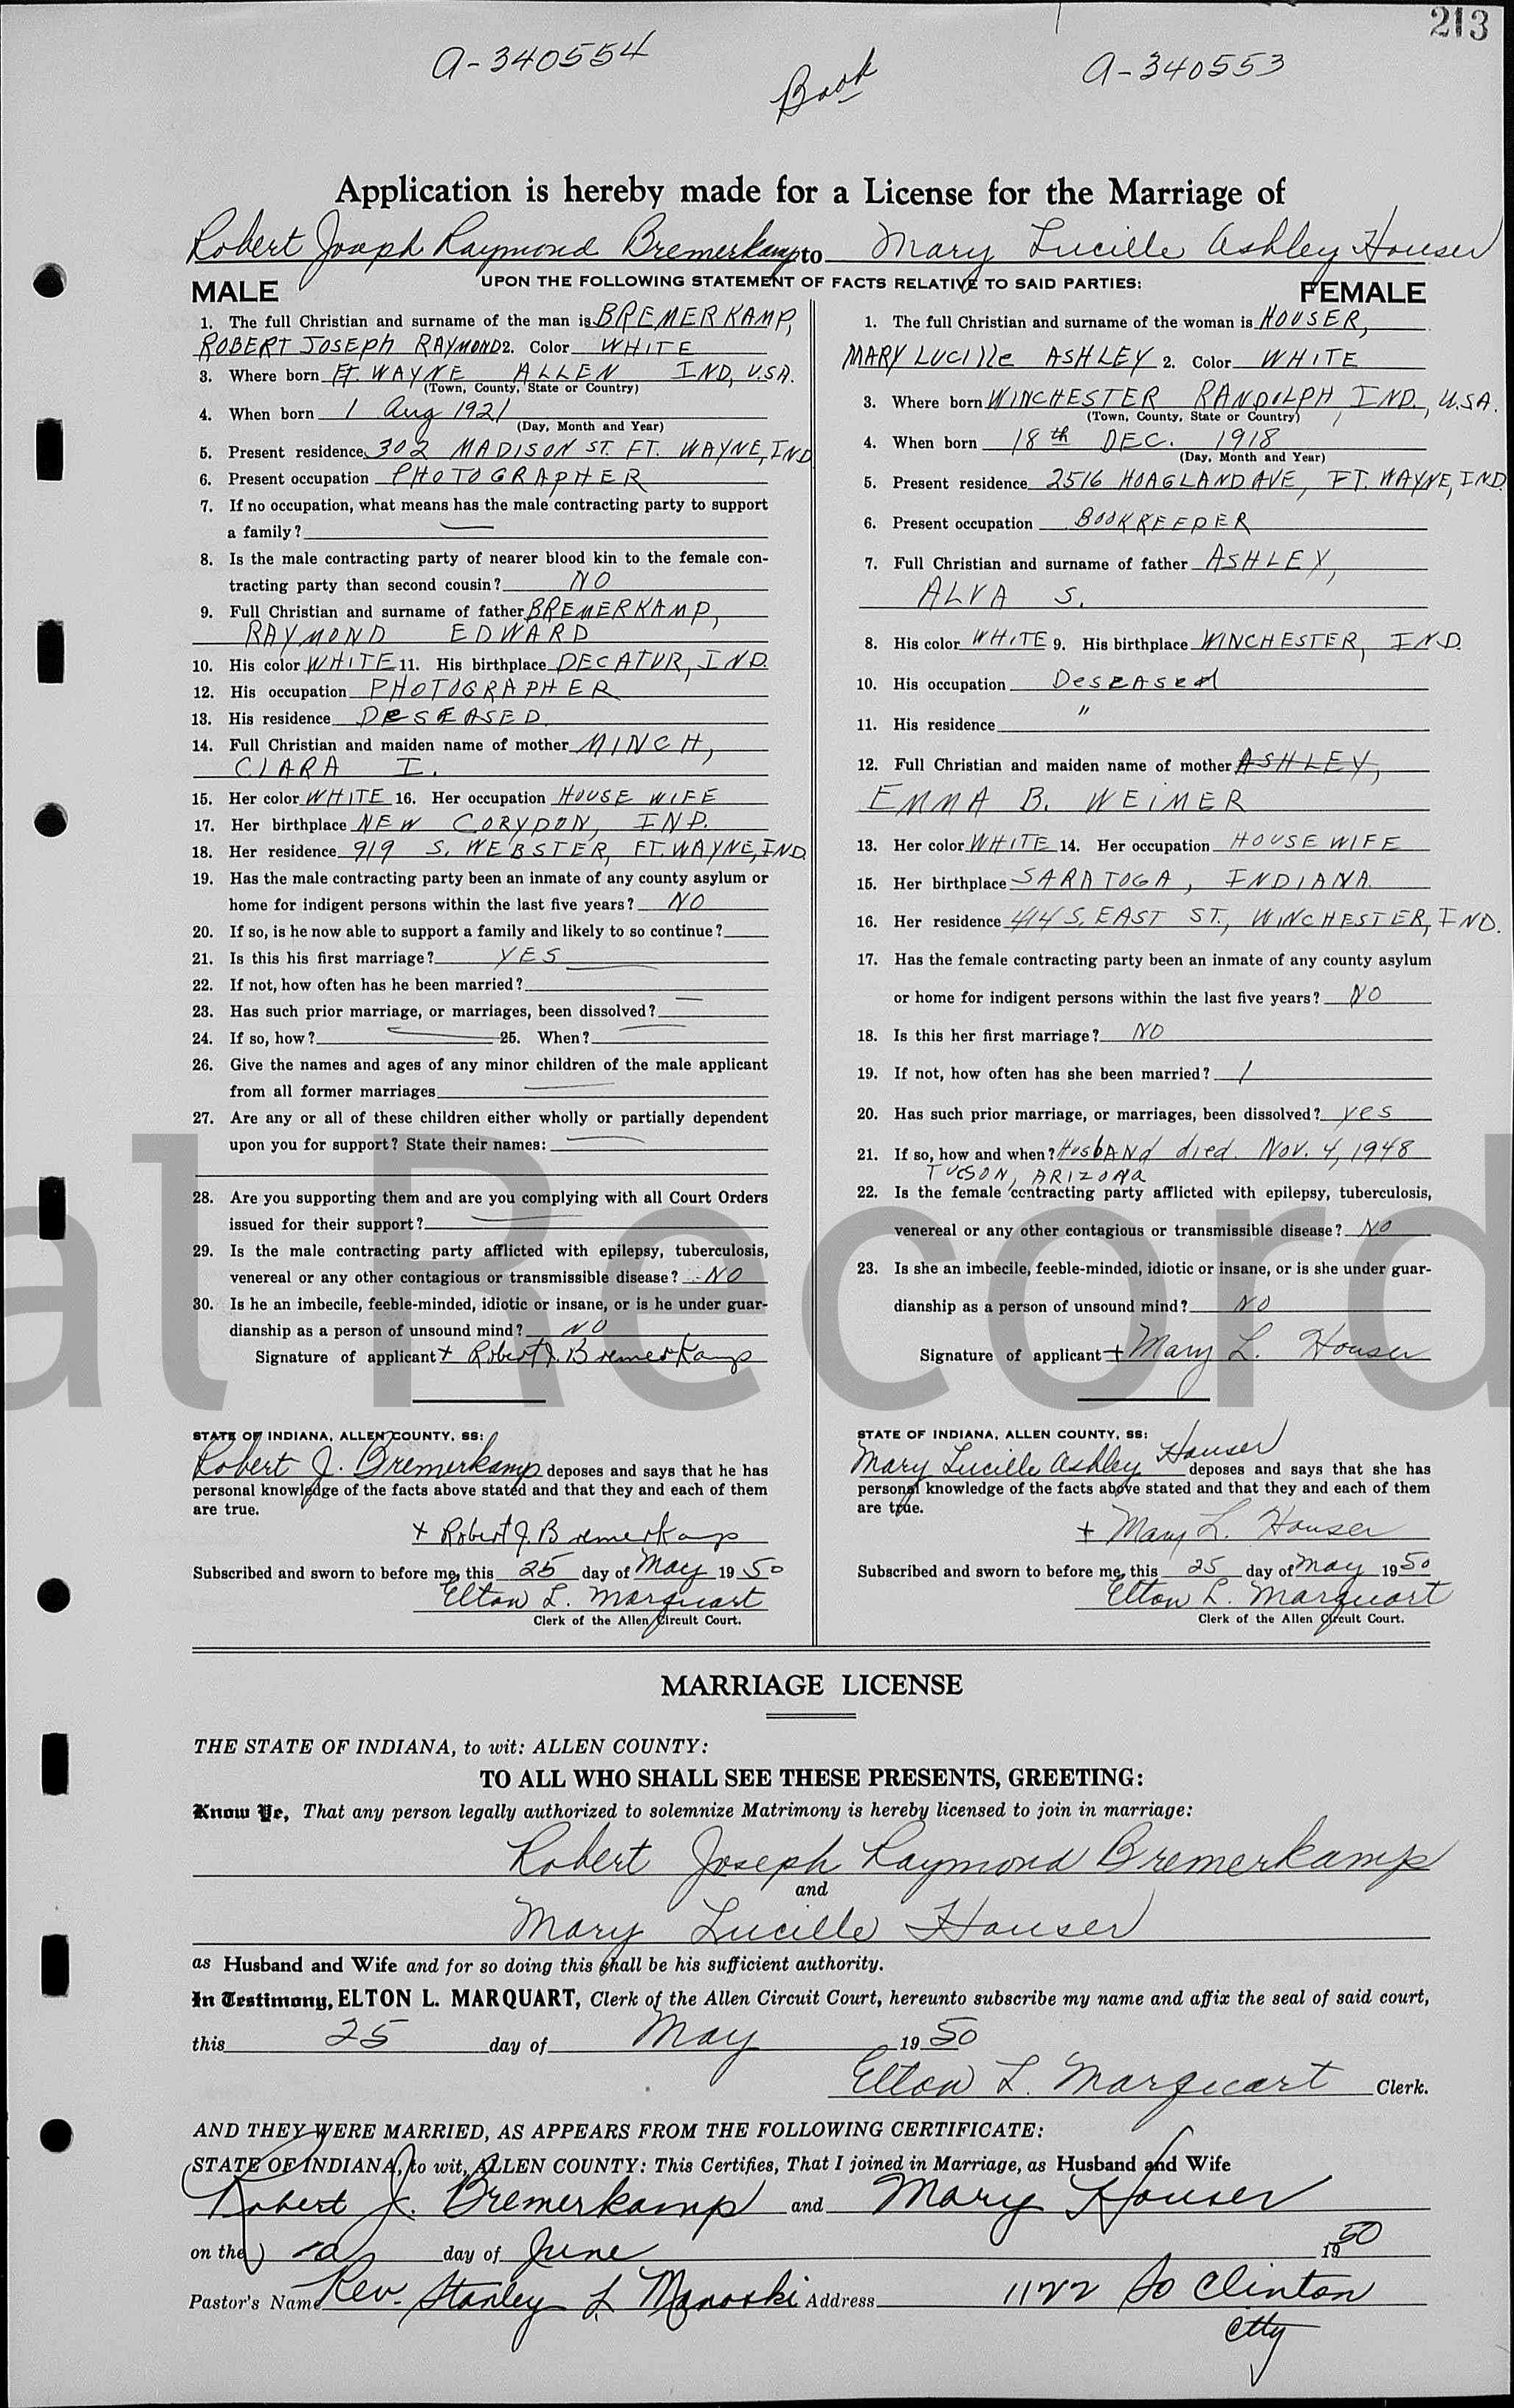 213
a-340554
Book
a-340553
Application is hereby made for a License for the Marriage of
Robert Joseph Raymond Bremerkamp to Mary Lucille Ashley Houser
UPON THE FOLLOWING STATEMENT OF FACTS RELATIVE TO SAID PARTIES:
MALE
1. The full Christian and surname of the man is BREMERKAMP,
ROBERT JOSEPH RAYMOND 2. Color WHITE
3. Where born FT. WAYNE ALLEN IND, U.S.A.
(Town, County, State or Country)
4. When born 1 Aug 1921
(Day, Month and Year)
5. Present residence 302 MADISON ST. FT. WAYNE, IND
6. Present occupation PHOTOGRAPHER
7. If no occupation, what means has the male contracting party to support
a family?
8. Is the male contracting party of nearer blood kin to the female con-
tracting party than second cousin? NO
9. Full Christian and surname of father BREMERKAMP,
RAYMOND EDWARD
10. His color WHITE 11. His birthplace DECATUR, IND.
12. His occupation PHOTOGRAPHER
13. His residence DESEASED
14. Full Christian and maiden name of mother MINCH,
CLARA I.
15. Her color WHITE 16. Her occupation HOUSE WIFE
17. Her birthplace NEW CORYDON, IND.
18. Her residence 919 S. WEBSTER, FT. WAYNE, IND.
19. Has the male contracting party been an inmate of any county asylum or
home for indigent persons within the last five years? NO
20. If so, is he now able to support a family and likely to so continue?
21. Is this his first marriage? YES
22. If not, how often has he been married?
23. Has such prior marriage, or marriages, been dissolved?
24. If so, how? 25. When?
26. Give the names and ages of any minor children of the male applicant
from all former marriages
27. Are any or all of these children either wholly or partially dependent
upon you for support? State their names:
28. Are you supporting them and are you complying with all Court Orders
issued for their support?
29. Is the male contracting party afflicted with epilepsy, tuberculosis,
venereal or any other contagious or transmissible disease? NO
30. Is he an imbecile, feeble-minded, idiotic or insane, or is he under guar-
dianship as a person of unsound mind? NO
Signature of applicant + Robert J. Bremerkamp
STATE OF INDIANA, ALLEN COUNTY, SS:
Robert J. Bremerkamp deposes and says that he has
personal knowledge of the facts above stated and that they and each of them
are true.
+ Robert J. Bremerkamp
Subscribed and sworn to before me, this 25 day of May 1950
Elton L. Marquart
Clerk of the Allen Circuit Court.
FEMALE
1. The full Christian and surname of the woman is HOUSER,
MARY LUCIlle ASHLEY 2. Color WHITE
3. Where born WINCHESTER RANDOLPH, IND., U.S.A.
(Town, County, State or Country)
4. When born 18th DEC. 1918
(Day, Month and Year)
5. Present residence 2516 HOAGLAND AVE, FT. WAYNE, IND.
6. Present occupation BOOKKEEPER
7. Full Christian and surname of father ASHLEY,
ALVA S.
8. His color WHITE 9. His birthplace WINCHESTER, IND.
10. His occupation DesEAsed
11. His residence "
12. Full Christian and maiden name of mother ASHLEY,
EMMA B. WEIMER
13. Her color WHITE 14. Her occupation HOUSE WIFE
15. Her birthplace SARATOGA, INDIANA.
16. Her residence 414 S. EAST ST., WINCHESTER, IND.
17. Has the female contracting party been an inmate of any county asylum
or home for indigent persons within the last five years? NO
18. Is this her first marriage? NO
19. If not, how often has she been married? 1
20. Has such prior marriage, or marriages, been dissolved? yes
21. If so, how and when? HusbANd died. Nov. 4, 1948
TUCSON, ARIZONa
22. Is the female contracting party afflicted with epilepsy, tuberculosis,
venereal or any other contagious or transmissible disease? NO
23. Is she an imbecile, feeble-minded, idiotic or insane, or is she under guar-
dianship as a person of unsound mind? NO
Signature of applicant + Mary L. Houser
STATE OF INDIANA, ALLEN COUNTY, SS:
Mary Lucille Ashley Houser deposes and says that she has
personal knowledge of the facts above stated and that they and each of them
are true.
+ Mary L. Houser
Subscribed and sworn to before me, this 25 day of May 1950
Elton L. Marquart
Clerk of the Allen Circuit Court.
al Record
MARRIAGE LICENSE
THE STATE OF INDIANA, to wit: ALLEN COUNTY:
TO ALL WHO SHALL SEE THESE PRESENTS, GREETING:
Know Ye, That any person legally authorized to solemnize Matrimony is hereby licensed to join in marriage:
Robert Joseph Raymond Bremerkamp
and
Mary Lucille Houser
as Husband and Wife and for so doing this shall be his sufficient authority.
In Testimony, ELTON L. MARQUART, Clerk of the Allen Circuit Court, hereunto subscribe my name and affix the seal of said court,
this 25 day of May 1950
Elton L. Marquart Clerk.
AND THEY WERE MARRIED, AS APPEARS FROM THE FOLLOWING CERTIFICATE:
STATE OF INDIANA, to wit, ALLEN COUNTY: This Certifies, That I joined in Marriage, as Husband and Wife
Robert J. Bremerkamp and Mary Houser
on the day of June 1950
Pastor's Name Rev. Stanley L Manoski Address 1122 So Clinton
City